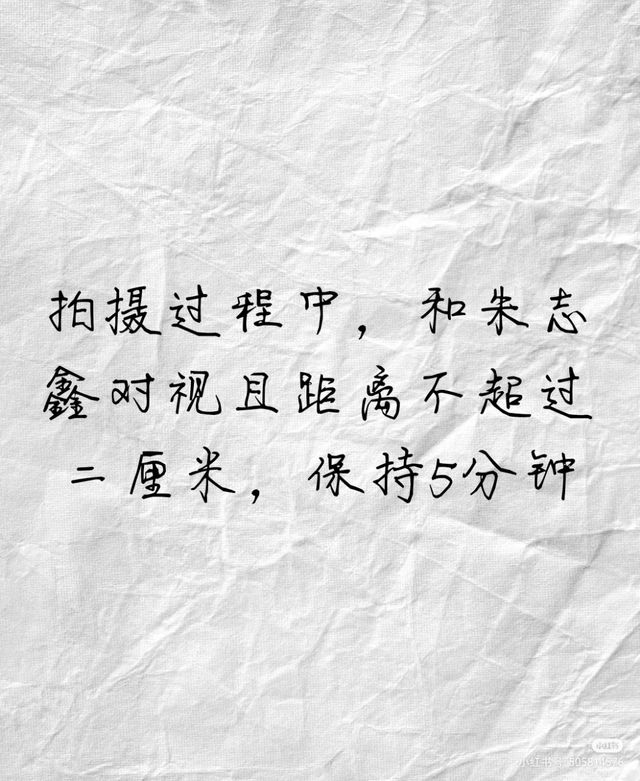 拍摄过程中，和朱志
鑫对视且距离不超过
二厘米，保持5分钟
小红书